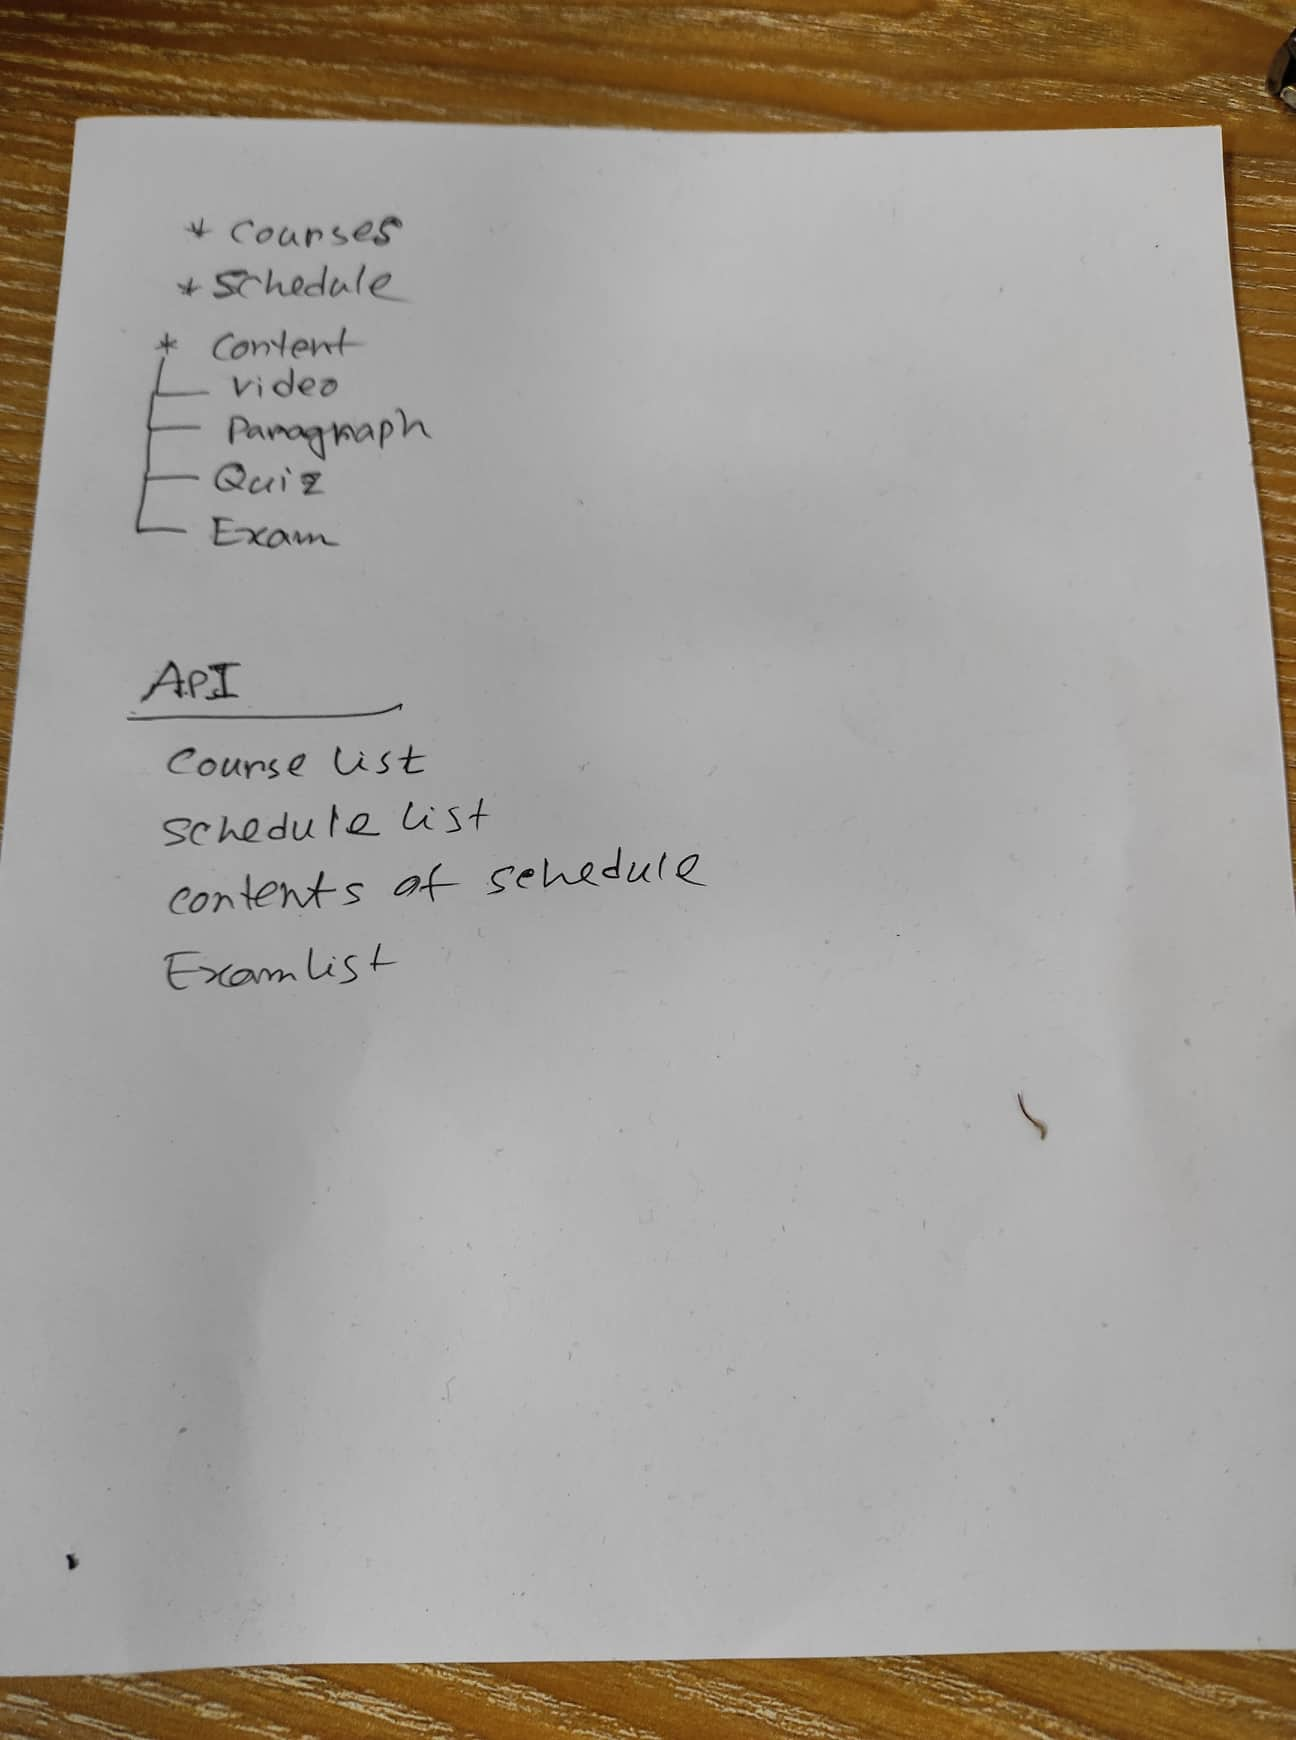 * Courses
* Schedule
* Content
Video
Paragraph
Quiz
Exam
API
Course list
Schedule list
contents of schedule
Exam list